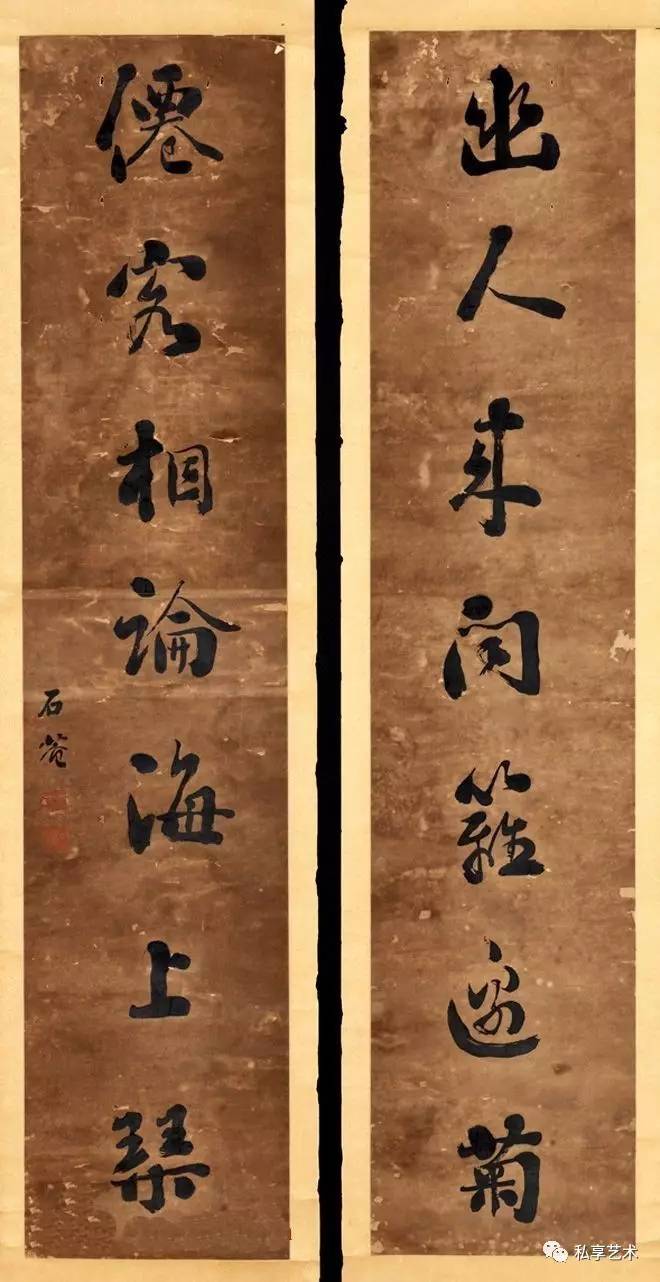 幽人来问籬邊菊
僊客相論海上琴
石菴
私享艺术